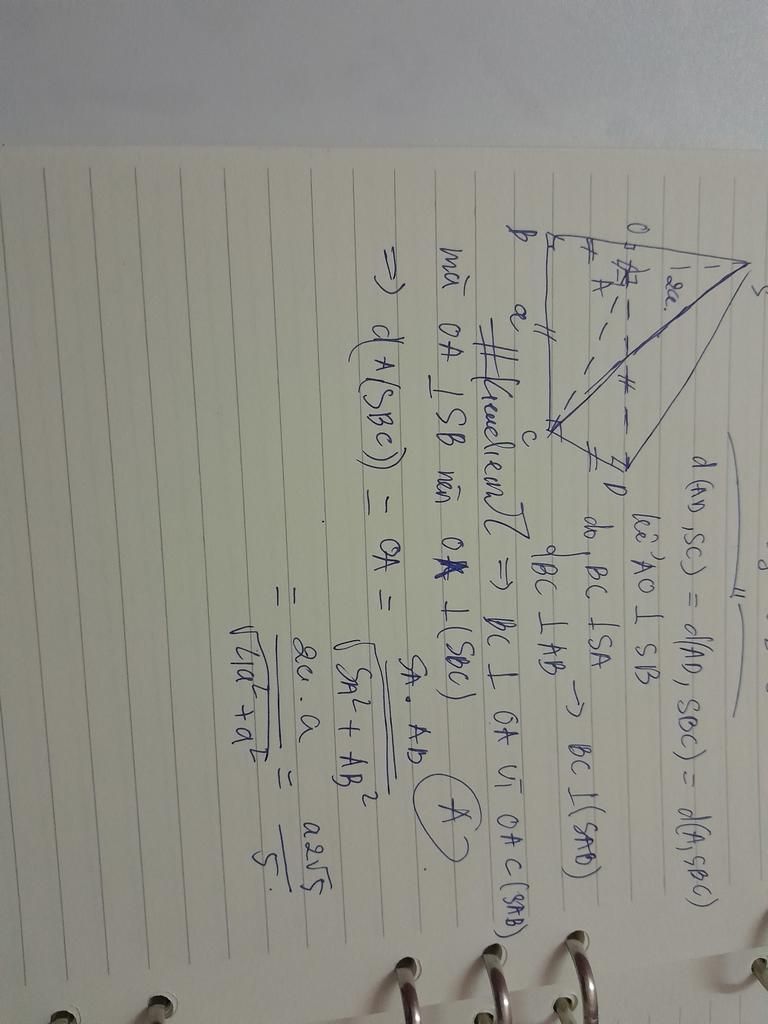 S
2a
O
A
D
B
a
C
d(AD, SC) = d(AD, SBC) = d(A, SBC)
kẻ AO ⊥ SB
do BC ⊥ SA
BC ⊥ AB → BC ⊥ (SAB)
=> BC ⊥ OA vì OA ⊂ (SAB)
mà OA ⊥ SB nên OA ⊥ (SBC)
=> d(A(SBC)) = OA = SA.AB / √SA² + AB²
A
= 2a.a / √4a² + a² = a2√5 / 5